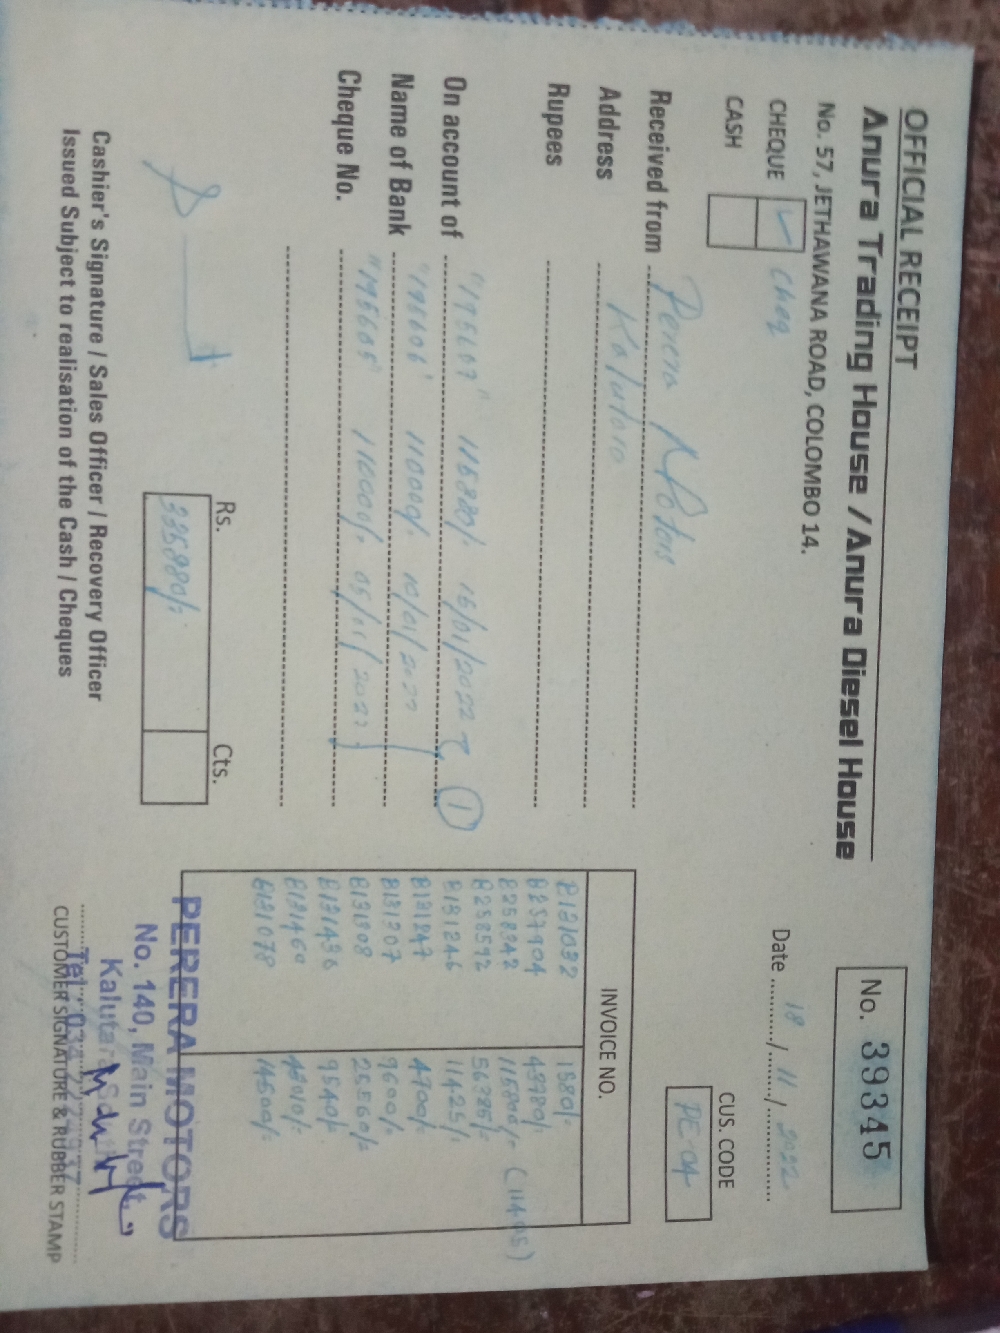 OFFICIAL RECEIPT
Anura Trading House / Anura Diesel House
No. 57, JETHAWANA ROAD, COLOMBO 14.
No. 39345
CHEQUE ✓ cheq
CASH
Date 18 / 11 / 2022
CUS. CODE
PE 04
Received from Perera Motors
Address Kalutara
Rupees
On account of "195607" 115880/- 15/01/2022 ①
Name of Bank "195606" 110000/- 10/01/2022
Cheque No. "195605" 110000/- 05/01/2022
INVOICE NO.
B131032 1580/-
B257904 43780/-
B258342 115800/-
B258592 56385/-
B131246 11425/-
B131247 4700/-
B131307 9600/-
B131308 25560/-
B131436 9540/-
B131460
B131078 14500/-
Rs. Cts.
335880/-
Cashier's Signature / Sales Officer / Recovery Officer
Issued Subject to realisation of the Cash / Cheques
PERERA MOTORS
No. 140, Main Street
Kalutara South
Tel: 034
CUSTOMER SIGNATURE & RUBBER STAMP